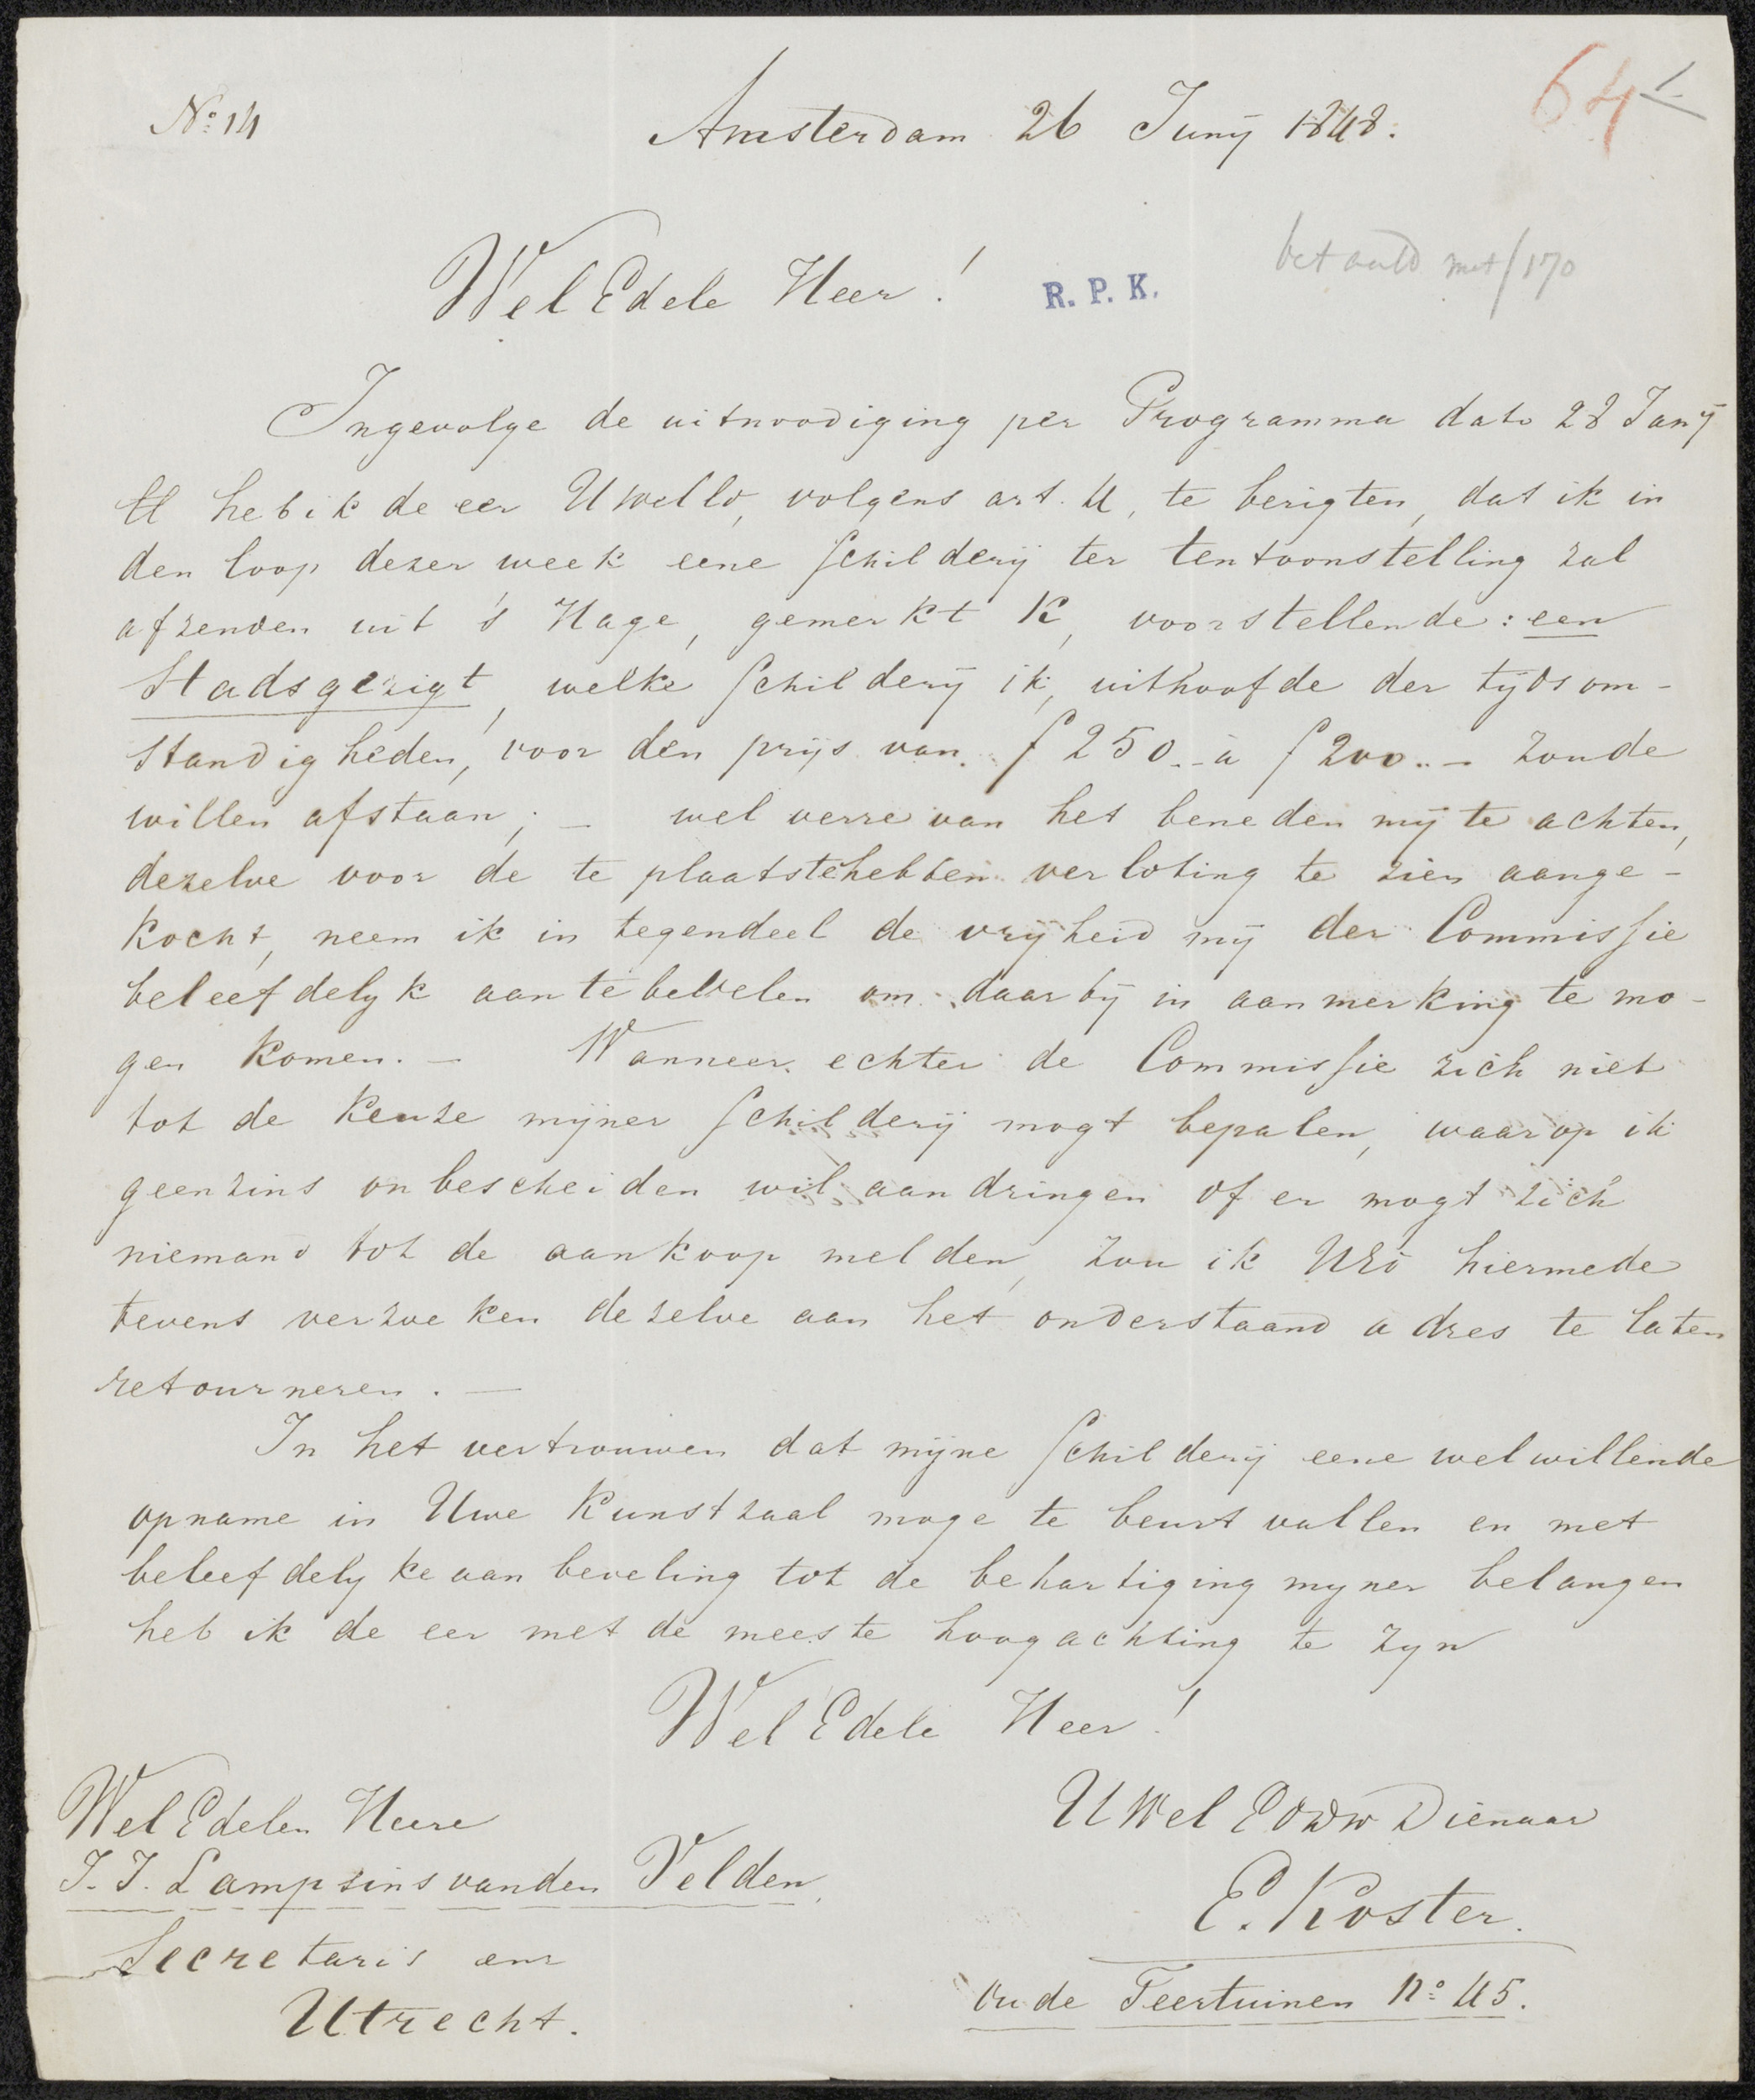 No: 14
Amsterdam 26 Junij 1848.
64
betaald met f 170
Wel Edele Heer!
R. P. K.
Ingevolge de uitnoodiging per Programma dato 28 Janij
ll heb ik de eer UWelEd, volgens art. 4, te berigten, dat ik in
den loop dezer week eene schilderij ter tentoonstelling zal
afzenden uit 's Hage, gemerkt K, voorstellende: een
Stadsgezigt, welke schilderij ik, uithoofde der tijdsom-
standigheden, voor den prijs van f 250.- à f 200..- zoude
willen afstaan; - wel verre van het beneden mij te achten,
dezelve voor de te plaatstehebben verloting te zien aange-
kocht, neem ik in tegendeel de vrijheid mij der Commissie
beleefdelyk aantebevelen om daarbij in aanmerking te mo-
gen komen. - Wanneer echter de Commissie zich niet
tot de keuze mijner schilderij mogt bepalen, waarop ik
geenzins onbescheiden wil aandringen of er mogt zich
niemand tot de aankoop melden, zou ik UEd hiermede
tevens verzoeken dezelve aan het onderstaand adres te laten
retourneren. -
In het vertrouwen dat mijne schilderij eene welwillende
opname in Uwe Kunstzaal moge te beurt vallen en met
beleefdelyke aanbeveling tot de behartiging myner belangen
heb ik de eer met de meeste hoogachting te zyn
Wel Edele Heer!
UWel Ed Dw Dienaar
E. Koster.
Oude Teertuinen No: 45.
Wel Edelen Heere
J. J. Lampsins vanden Velden,
Secretaris enz
Utrecht.